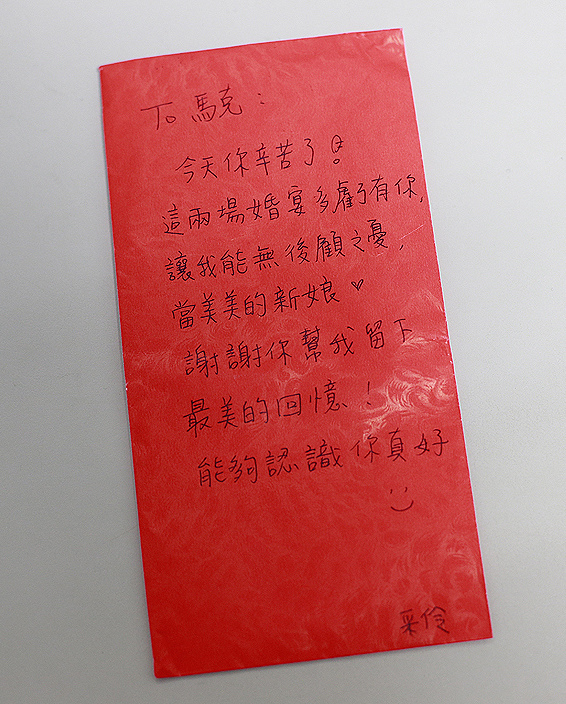 To 馬克：
今天你辛苦了！
這兩場婚宴多虧有你，
讓我能無後顧之憂，
當美美的新娘♥
謝謝你幫我留下
最美的回憶！
能夠認識你真好
采伶